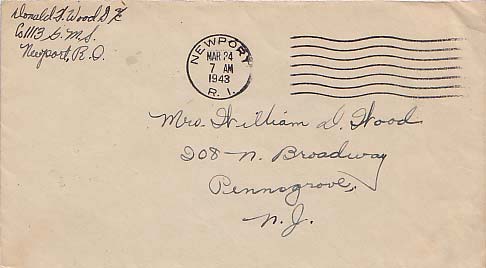 Donald F. Wood
Co. 1113 G.M.S.
Newport, R.I.
NEWPORT
MAR 24
7 AM
1943
R. I.
Mrs. William D. Wood
208 N. Broadway
Pennsgrove,
N.J.